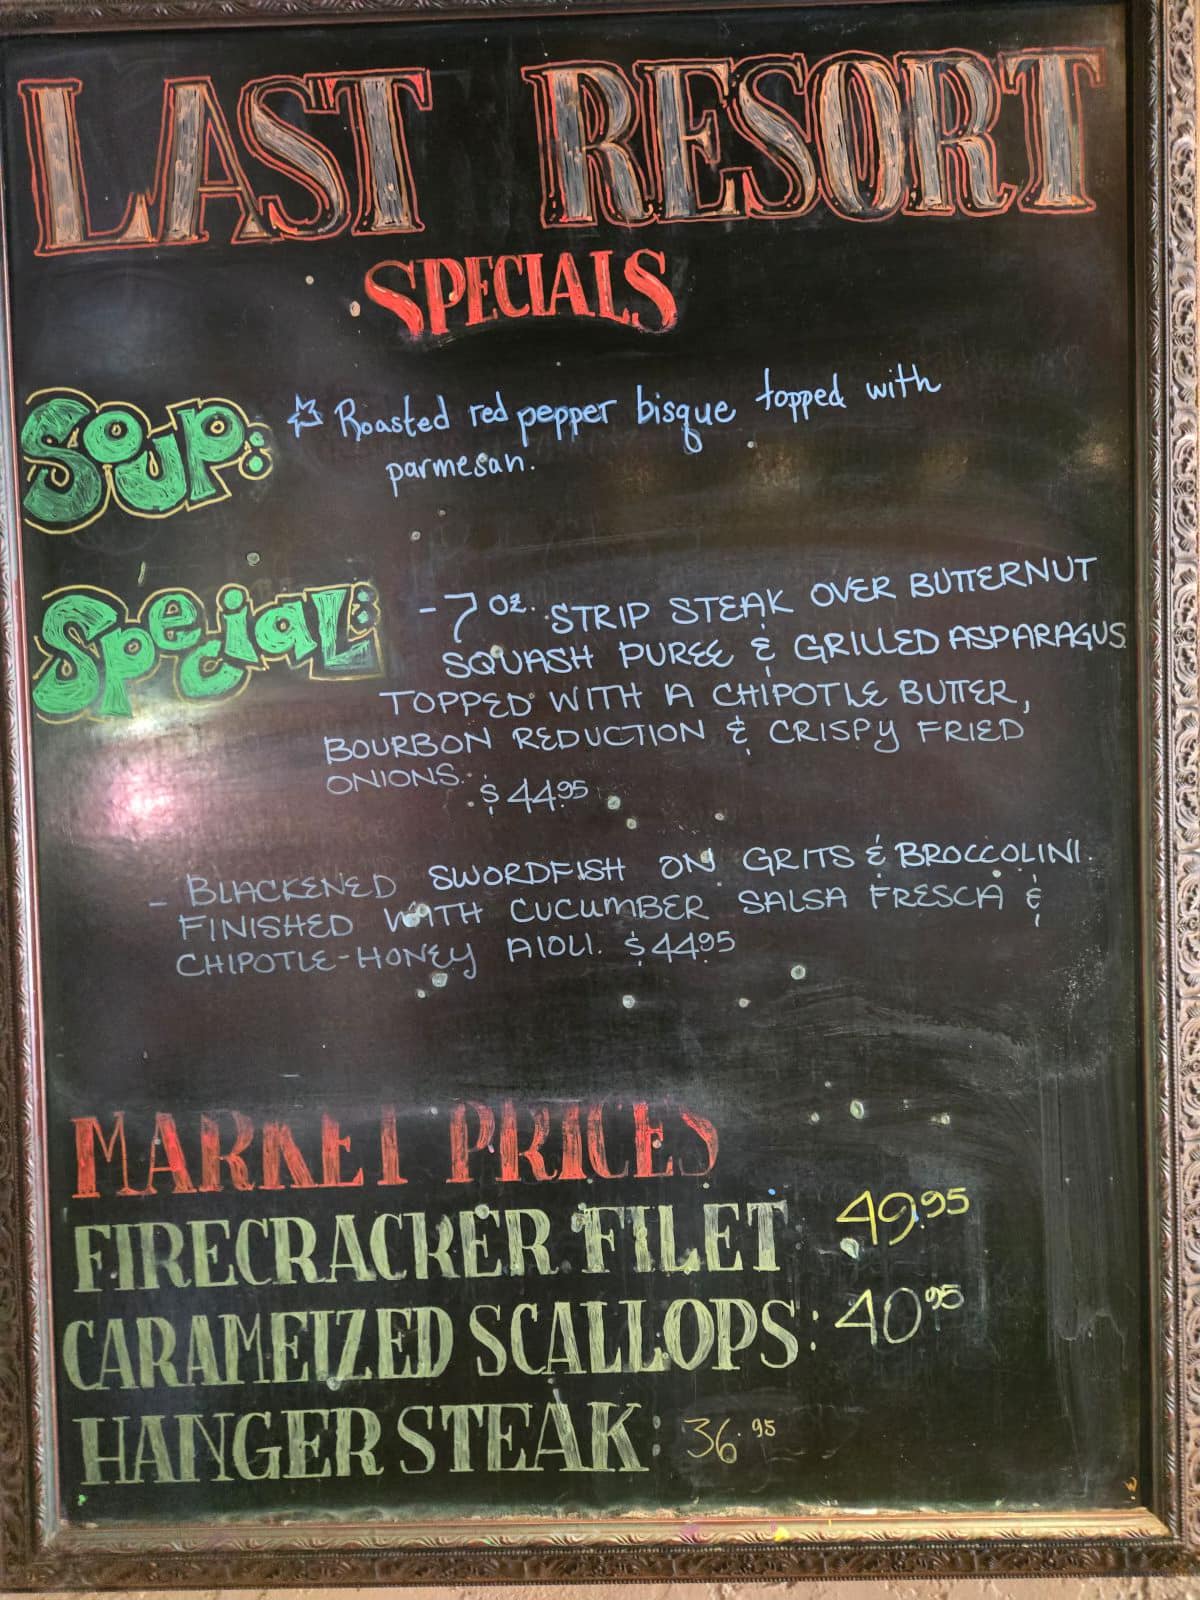 LAST RESORT
SPECIALS
SOUP: Roasted red pepper bisque topped with
parmesan.
SPECIAL: - 7 oz. STRIP STEAK OVER BUTTERNUT
SQUASH PUREE & GRILLED ASPARAGUS
TOPPED WITH A CHIPOTLE BUTTER,
BOURBON REDUCTION & CRISPY FRIED
ONIONS. $44.95
- BLACKENED SWORDFISH ON GRITS & BROCCOLINI.
FINISHED WITH CUCUMBER SALSA FRESCA &
CHIPOTLE-HONEY AIOLI. $44.95
MARKET PRICES
FIRECRACKER FILET 49.95
CARAMEIZED SCALLOPS: 40.95
HANGER STEAK: 36.95
W